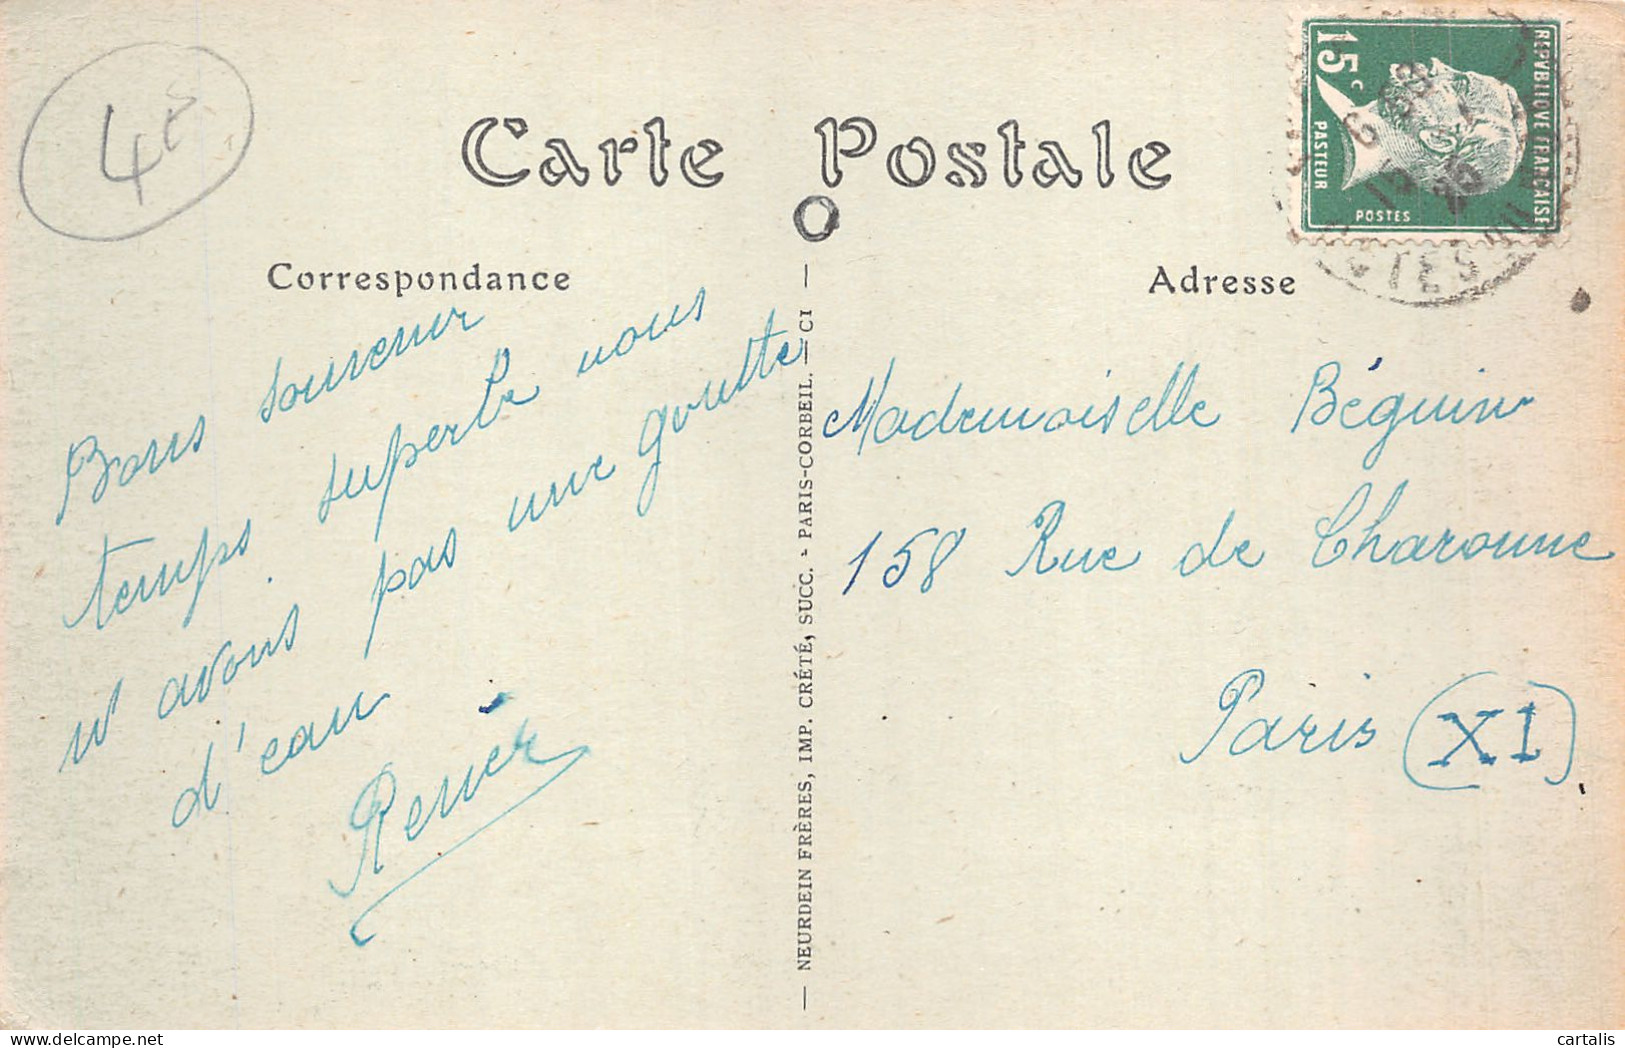 4€
Carte Postale
Correspondance
Adresse
REPVBLIQVE FRANCAISE
15c
PASTEUR
POSTES
Bons souvenir
temps superbe nous
n'avons pas une goutte
d'eau
Renée
Mademoiselle Béguin
158 Rue de Charonne
Paris (XI)
— NEURDEIN FRÈRES, IMP. CRÉTÉ, SUCC. - PARIS-CORBEIL. — CI —
cartalis
Delcampe.net